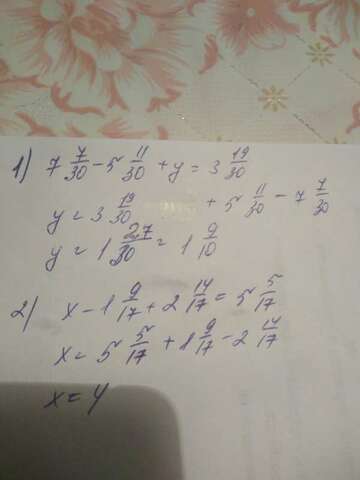 1) 7 7/30 - 5 11/30 + y = 3 19/30
y = 3 19/30 + 5 11/30 - 7 7/30
y = 1 27/30 = 1 9/10
2) x - 1 9/17 + 2 14/17 = 5 5/17
x = 5 5/17 + 1 9/17 - 2 14/17
x = 4